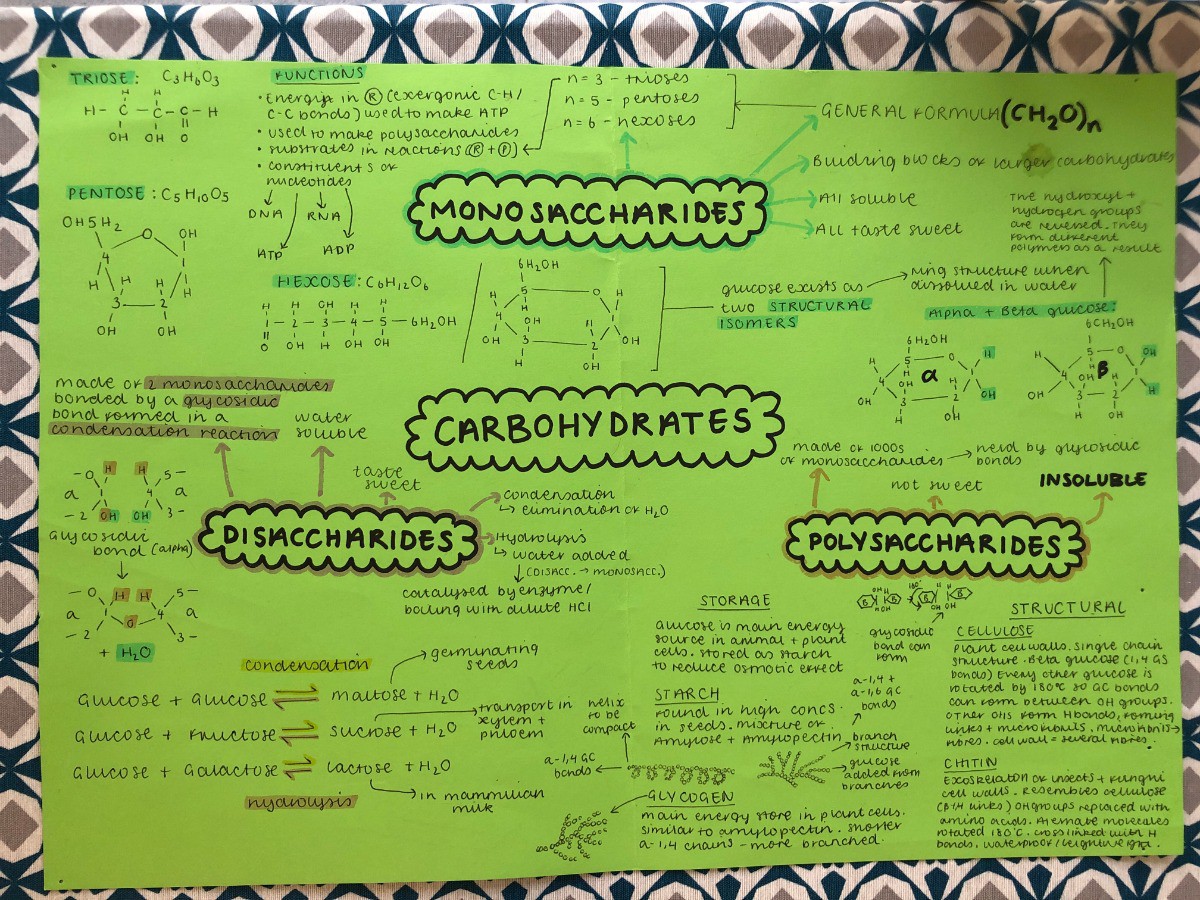 TRIOSE: C3H6O3
H - C - C - C - H
H H
OH OH O
FUNCTIONS
• Energy in Ⓡ (exergonic C-H/
C-C bonds) used to make ATP
• used to make polysaccharides
• substrates in reactions (Ⓡ + Ⓟ)
• constituents of
nucleotides
DNA RNA
ATP ADP
n = 3 - trioses
n = 5 - pentoses
n = 6 - hexoses
GENERAL FORMULA (CH2O)n
Building blocks of larger carbohydrates
All soluble
All taste sweet
MONOSACCHARIDES
PENTOSE: C5H10O5
OH5H2 O OH
4 1
H H H H
3 - 2
OH OH
HEXOSE: C6H12O6
H H OH H H
1 - 2 - 3 - 4 - 5 - 6H2OH
O OH H OH OH
6H2OH
5 O H
H H
4 OH H 1
OH 3 2 OH
H OH
glucose exists as
two STRUCTURAL
ISOMERS
ring structure when
dissolved in water
The hydroxyl +
hydrogen groups
are reversed. They
form different
polymers as a result
Alpha + Beta glucose:
6H2OH
H 5 O H
4 H α 1
OH OH H OH
3 - 2
H OH
6CH2OH
H 5 O OH
4 H β 1
OH OH H H
3 - 2
H OH
CARBOHYDRATES
made of 2 monosaccharides
bonded by a glycosidic
bond formed in a
condensation reaction
water
soluble
taste
sweet
-O H H 5-
a 4 a
-2 OH OH 3-
Glycosidic
bond (alpha)
-O H H 5-
a 1 4 a
-2 O 3-
+ H2O
DISACCHARIDES
condensation
↳ elimination of H2O
Hydrolysis
↳ water added
(DISACC. → MONOSACC.)
catalysed by enzyme/
boiling with dilute HCl
condensation
Glucose + Glucose ⇌ maltose + H2O
germinating
seeds
Glucose + Fructose ⇌ sucrose + H2O
transport in
xylem +
phloem
Glucose + Galactose ⇌ lactose + H2O
in mammalian
milk
hydrolysis
made of 1000s
of monosaccharides → held by glycosidic
bonds
not sweet
INSOLUBLE
POLYSACCHARIDES
STORAGE
Glucose is main energy
source in animal + plant
cells. Stored as starch
to reduce osmotic effect
STARCH
Found in high concs.
in seeds. mixture of
Amylose + Amylopectin
helix
to be
compact
a-1,4 GC
bonds
a-1,4 +
a-1,6 GC
bonds
branch
structure
glucose
added from
branches
GLYCOGEN
main energy store in plant cells.
similar to amylopectin. shorter
a-1,4 chains - more branched.
180°
glycosidic
bond can
form
STRUCTURAL
CELLULOSE
Plant cell walls. Single chain
structure. Beta glucose (1,4 GS
bonds) Every other glucose is
rotated by 180°C so GC bonds
can form between OH groups.
Other OHs form H bonds, forming
links + microfibrils. microfibrils →
fibres. cell wall = several fibres.
CHITIN
Exoskeleton of insects + fungni
cell walls. Resembles cellulose
(β1,4 links.) OH groups replaced with
amino acids. Alternate molecules
rotated 180°C. Cross linked with H
bonds, waterproof/